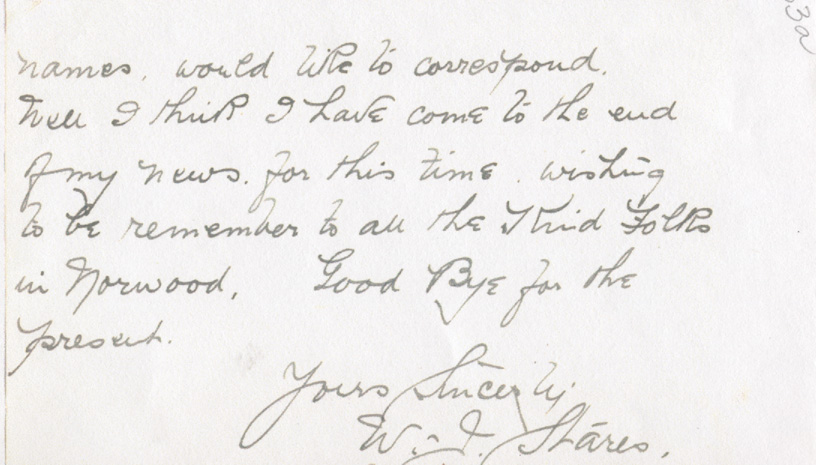 names. would like to correspond.
Well I think I have come to the end
of my news. for this time. wishing
to be remember to all the Kind Folks
in Norwood. Good Bye for the
present.
Yours Sincerely
W. J. Stares.